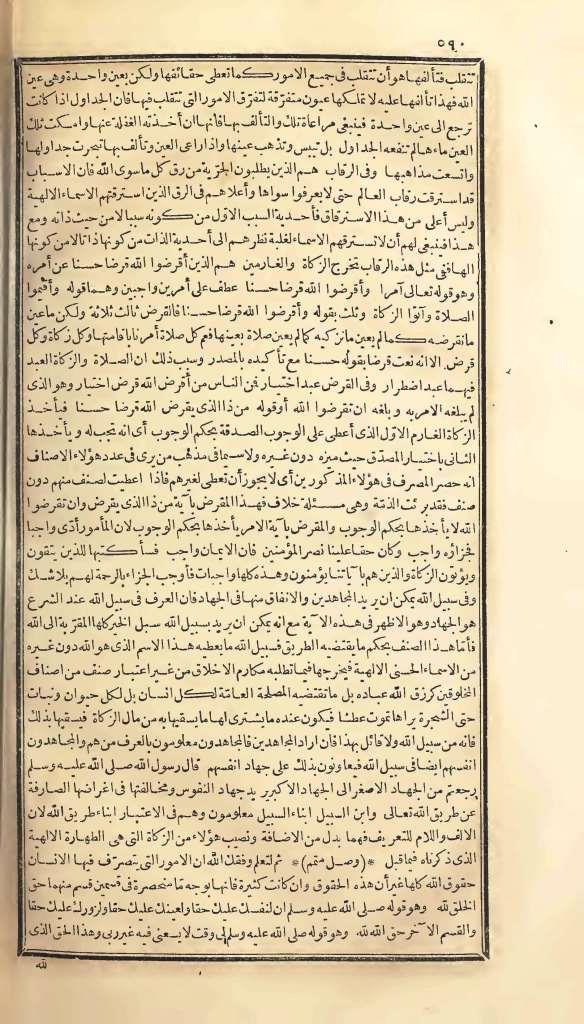 ٥٩٠
تتقلب فتألفها هو أن تتقلب في جميع الامور كما تعطي حقائقها ولكن بعين واحدة وهي عين
الله فهذا تألفها عليه لا تملكها عيون متفرقة لتفرق الامور التي تتقلب فيها فان الجداول اذا كانت
ترجع الى عين واحدة فينبغي مراعاة تلك والتألف بها فانها ان أخذته الغفلة عنها وامسكت تلك
العين ماءها لم تنفعه الجداول بل تيبس وتذهب عينها واذا راعى العين وتألف بها تبحرت جداولها
واتسعت مذاهبها وفي الرقاب هم الذين يطلبون الحرية من رق كل ما سوى الله فان الاسباب
قد استرقت رقاب العالم حتى لا يعرفوا سواها وأعلاهم في الرق الذين استرقتهم الاسماء الالهية
وليس أعلى من هذا الاسترقاق فأحدية السبب الاول من كونه سببا لا من حيث ذاته ومع
هذا فينبغي لهم أن لا تسترقهم الاسماء لغلبة نظرهم الى أحدية الذات من كونها ذاتا لا من كونها
الها ففي مثل هذه الرقاب تخرج الزكاة والغارمين هم الذين أقرضوا الله قرضا حسنا عن أمره
وهو قوله تعالى آمرا وأقرضوا الله قرضا حسنا عطف على أمرين واجبين وهما قوله وأقيموا
الصلاة وآتوا الزكاة وثلث بقوله وأقرضوا الله قرضا حسنا فالقرض ثالث ثلاثة ولكن ما عين
ما نقرضه كما لم يعين ما نزكيه كما لم يعين صلاة بعينها فعم كل صلاة أمرنا باقامتها وكل زكاة وكل
قرض الا انه نعت قرضا بقوله حسنا مع تأكيده بالمصدر وسبب ذلك ان الصلاة والزكاة العبد
فيهما عبد اضطرار وفي القرض عبد اختيار فمن الناس من أقرض الله قرض اختيار وهو الذي
لم يبلغه الامر به وبلغه ان تقرضوا الله أو قوله من ذا الذي يقرض الله قرضا حسنا فيأخذ
الزكاة الغارم الاول الذي أعطى على الوجوب الصدقة بحكم الوجوب أي انه تجب له ويأخذها
الثاني باختيار المصدق حيث ميزه دون غيره ولا سيما في مذهب من يرى في عدد هؤلاء الاصناف
انه حصر المصرف في هؤلاء المذكورين أي لا يجوز أن تعطى لغيرهم فاذا اعطيت لصنف منهم دون
صنف فقد برئت الذمة وهي مسئلة خلاف فهذا المقرض بآية من ذا الذي يقرض وان تقرضوا
الله لا يأخذها بحكم الوجوب والمقرض بآية الامر يأخذها بحكم الوجوب لان المأمور أدى واجبا
فجزاؤه واجب وكان حقا علينا نصر المؤمنين فان الايمان واجب فسأكتبها للذين يتقون
ويؤتون الزكاة والذين هم بآياتنا يؤمنون وهذه كلها واجبات فأوجب الجزاء بالرحمة لهم بلا شك
وفي سبيل الله يمكن ان يريد المجاهدين والانفاق منها في الجهاد فان العرف في سبيل الله عند الشرع
هو الجهاد وهو الاظهر في هذه الآية مع انه يمكن ان يريد بسبيل الله سبل الخير كلها المقربة الى الله
فأما هذا الصنف بحكم ما يقتضيه الطريق فسبيل الله ما يعطيه هذا الاسم الذي هو الله دون غيره
من الاسماء الحسنى الالهية فيخرجها فيما تطلبه مكارم الاخلاق من غير اعتبار صنف من اصناف
المخلوقين كرزق الله عباده بل ما تقتضيه المصلحة العامة لكل انسان بل لكل حيوان ونبات
حتى الشجرة يراها تموت عطشا فيكون عنده ما يشتري لها ما يسقيها به من مال الزكاة فيسقيها بذلك
فانه من سبيل الله ولا قائل بهذا فان اراد المجاهدين فالمجاهدون معلومون بالعرف من هم والمجاهدون
انفسهم أيضا في سبيل الله فيعاونون بذلك على جهاد انفسهم قال رسول الله صلى الله عليه وسلم
رجعتم من الجهاد الاصغر الى الجهاد الاكبر يريد جهاد النفوس ومخالفتها في اغراضها الصارفة
عن طريق الله تعالى وابن السبيل ابناء السبيل معلومون وهم في الاعتبار ابناء طريق الله لان
الالف واللام للتعريف فهما بدل من الاضافة ونصيب هؤلاء من الزكاة التي هي الطهارة الالهية
الذي ذكرناه فيما قبل * (وصل متمم) * ثم لتعلم وفقك الله ان الامور التي يتصرف فيها الانسان
حقوق الله كلها غير أن هذه الحقوق وان كانت كثيرة فانها بوجه ما منحصرة في قسمين قسم منهما حق
الخلق لله وهو قوله صلى الله عليه وسلم ان لنفسك عليك حقا ولعينك عليك حقا ولزورك عليك حقا
والقسم الآخر حق الله لله وهو قوله صلى الله عليه وسلم لي وقت لا يسعني فيه غير ربي وهذا الحق الذي
لله